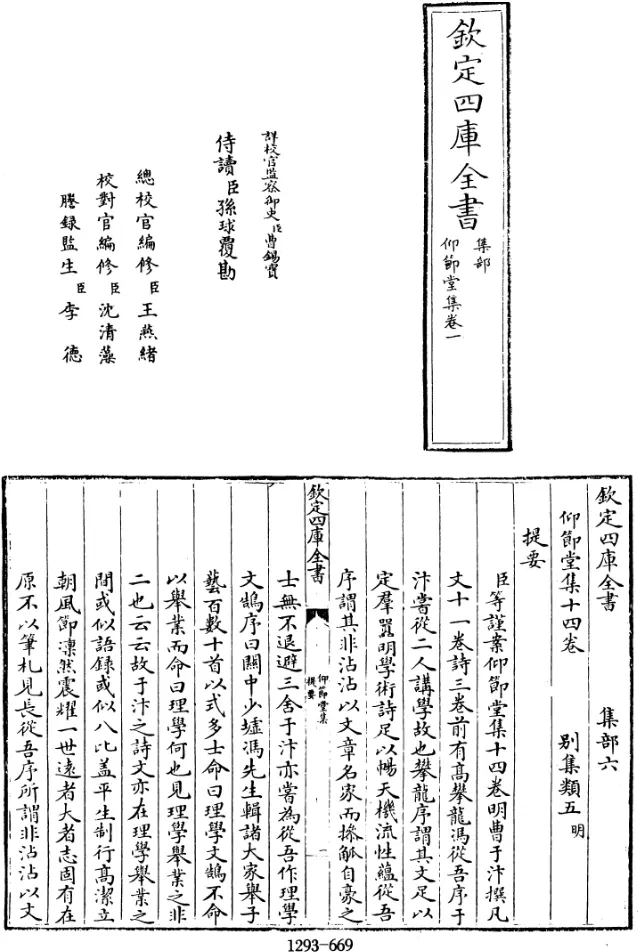 欽定四庫全書
集部
仰節堂集卷一
詳校官監察御史臣曹錫寶
侍讀臣孫球覆勘
總校官編修臣王燕緒
校對官編修臣沈清藻
謄録監生臣李德
欽定四庫全書 集部六
仰節堂集十四卷 别集類五明
提要
臣等謹案仰節堂集十四卷明曹于汴撰凡
文十一卷詩三卷前有髙攀龍馮從吾序于
汴嘗從二人講學故也攀龍序謂其文足以
定羣嚚明學術詩足以暢天機流性蘊從吾
序謂其非沾沾以文章名家而操觚自豪之
欽定四庫全書
仰節堂集
提要
一
士無不退避三舍于汴亦嘗為從吾作理學
文鵠序曰關中少墟馮先生輯諸大家舉子
藝百數十首以式多士命曰理學文鵠不命
以舉業而命曰理學何也見理學舉業之非
二也云云故于汴之詩文亦在理學舉業之
間或似語録或似八比盖平生制行髙潔立
朝風節凛然震耀一世逺者大者志固有在
原不以筆札見長從吾序所謂非沾沾以文
1293-669